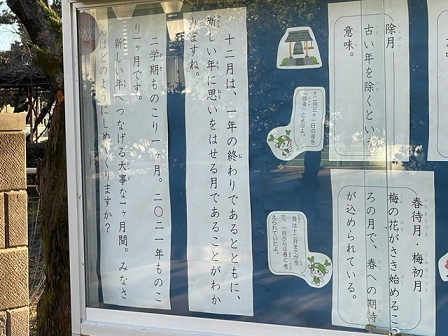 除月
じょげつ
古い年を除くとい
意味。
十二月三十一日の夜を
「除夜」とよぶよ。
春待月・梅初月
梅の花がさき始めるこ
ろの月で、春への期待
が込められている。
十二月は、一年の終わりであるとともに、
新しい年に思いをはせる月であることがわか
りますね。
二学期ものこり一ヶ月。二〇二一年ものこ
り一ヶ月です。
新しい年へつなげる大事な一ヶ月間。みなさ
んはどのようにしめくくりますか？